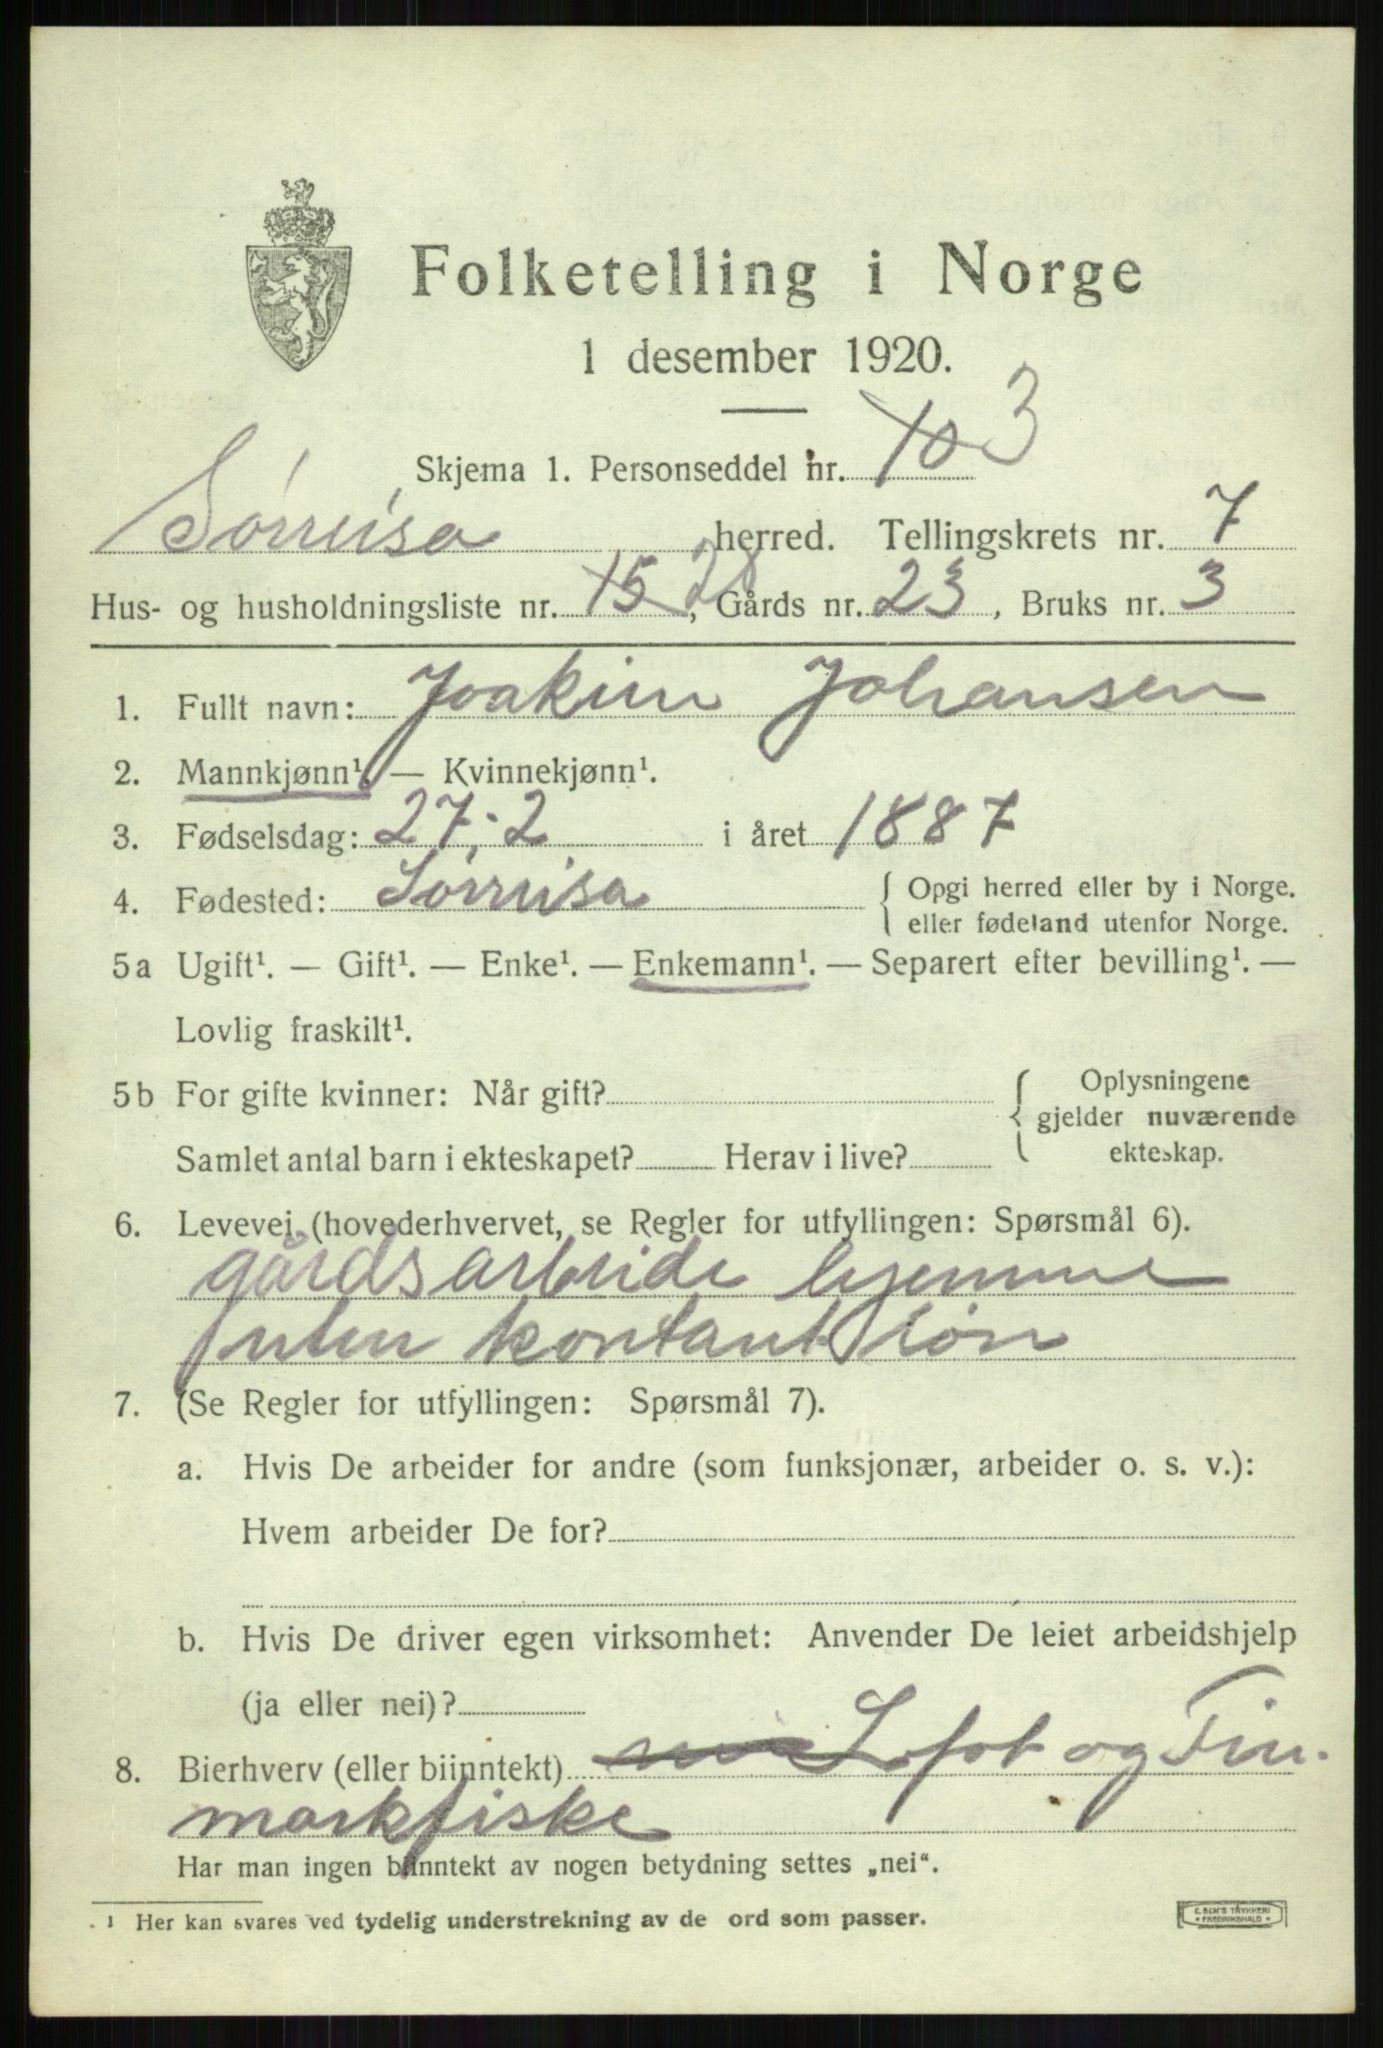 Folketelling i Norge
1 desember 1920.
Skjema 1. Personseddel nr. 10 3
Sørreisa herred. Tellingskrets nr. 7
Hus- og husholdningsliste nr. 15 28, Gårds nr. 23, Bruks nr. 3
1. Fullt navn: Joakim Johansen
2. Mannkjønn¹. — Kvinnekjønn¹.
3. Fødselsdag: 27.-2 i året 1887
4. Fødested: Sørreisa { Opgi herred eller by i Norge.
eller fødeland utenfor Norge.
5a Ugift¹. — Gift¹. — Enke¹. — Enkemann¹. — Separert efter bevilling¹. —
Lovlig fraskilt¹.
5b For gifte kvinner: Når gift? { Oplysningene
gjelder nuværende
Samlet antal barn i ekteskapet? Herav i live? ekteskap.
6. Levevei (hovederhvervet, se Regler for utfyllingen: Spørsmål 6).
gårdsarbeide hjemme
uten kontant løn
7. (Se Regler for utfyllingen: Spørsmål 7).
a. Hvis De arbeider for andre (som funksjonær, arbeider o. s. v.):
Hvem arbeider De for?
b. Hvis De driver egen virksomhet: Anvender De leiet arbeidshjelp
(ja eller nei)?
8. Bierhverv (eller biinntekt) Lofot og Fin-
markfiske
Har man ingen biinntekt av nogen betydning settes „nei“.
¹ Her kan svares ved tydelig understrekning av de ord som passer.
E. SEM'S TRYKKERI
FREDRIKSHALD